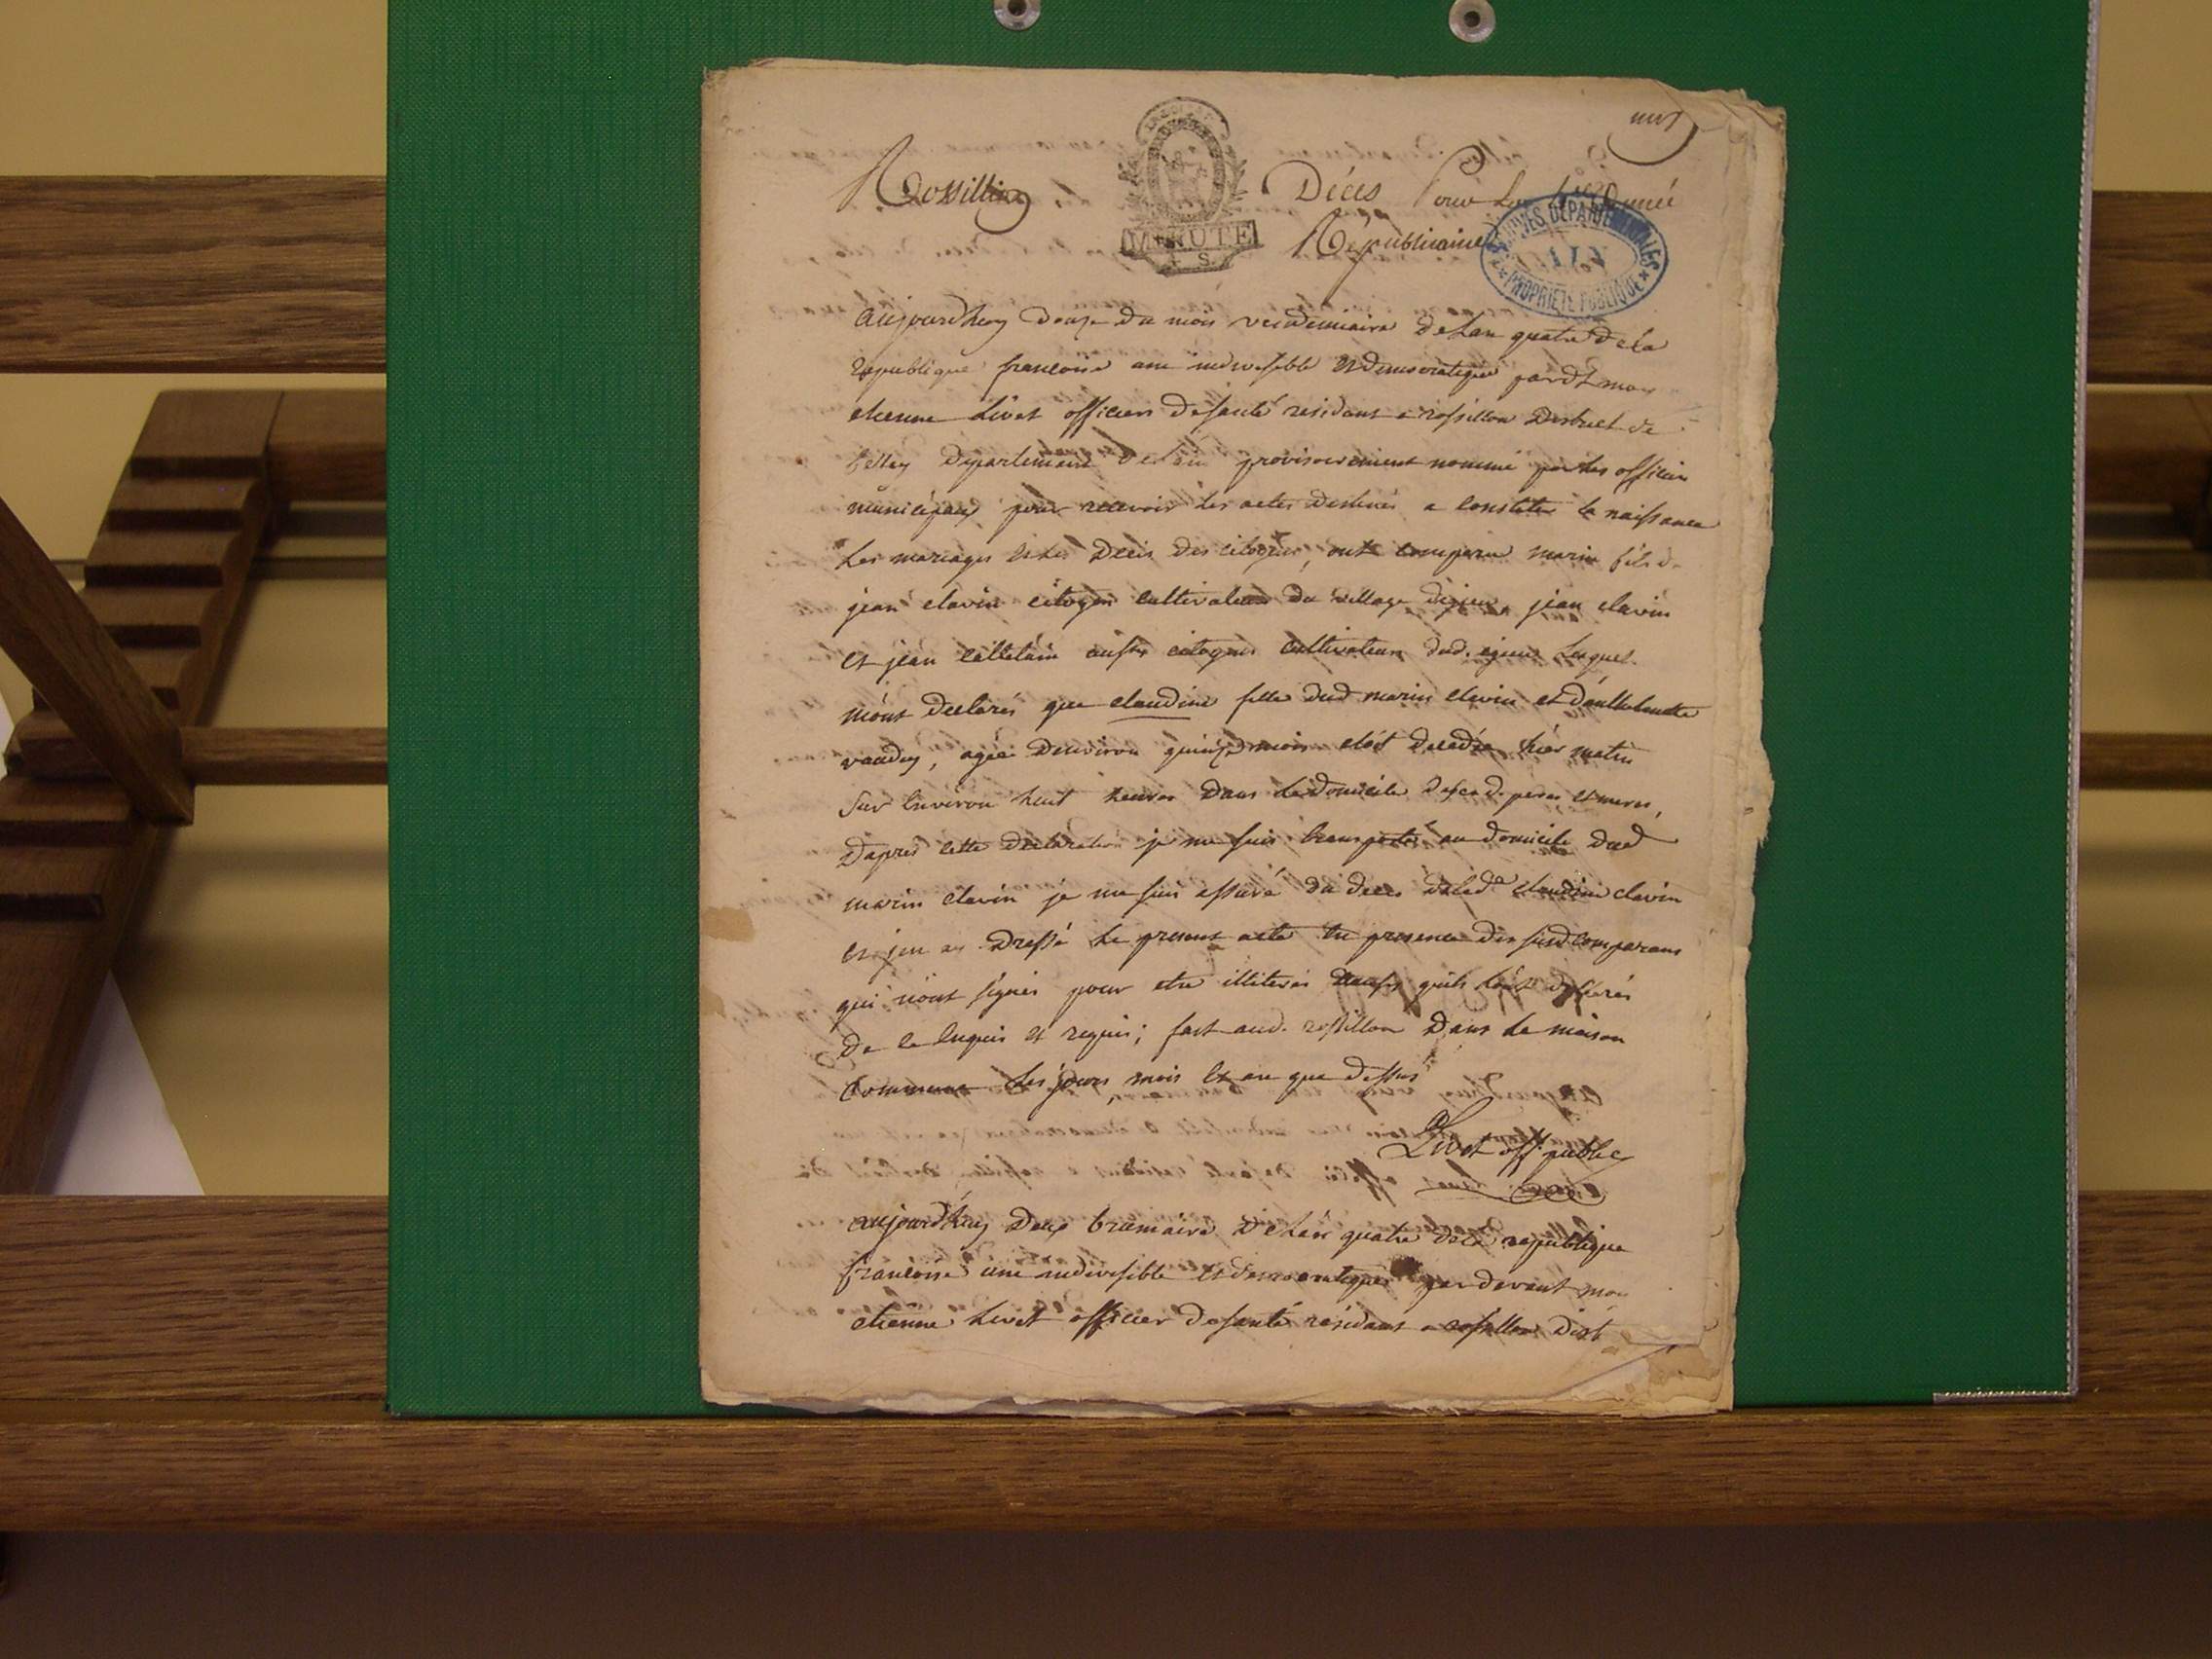 Rossillon
MINUTE
4 S.
Décès Pour La 4me année
Républicaine
ARCHIVES DÉPARTEMENTALES
AIN
* PROPRIÉTÉ PUBLIQUE *
aujourdhuy douze du mois vendemiaire de Lan quatre de la
republique francoise une indivisible et democratique pardt moy
etienne Livet officier de santé residant a rossillon district de
belley departement de Lain provisoirement nommé par Les officiers
municipaux pour recevoir Les actes destinés a constater la naissance
Les mariages et Les décès des citoyens, ont comparu marin fils de
jean clavin citoyen cultivateur du village dijieu, jean clavin
et jean aussy citoyens cultivateurs dud. ijieu Lesquels
mont declarés que claudine fille dud marin clavin et
vaudey, agée denviron quinze mois etoit decedée hier matin
Sur Environ huit heures dans Le domicile de sesd. peres et meres,
dapres cette declaration je me suis transporté au domicile dud
marin clavin je me suis assuré du deces delade claudine clavin
et jen ai dressé Le present acte En presence des susd comparans
qui nont signés pour etre illiterés
de ce Enquis et requis; fait aud. rossillon dans La maison
Commune Les jours, mois Et an que dessus
Livet off. public
aujourdhuy deux brumaire de Lan quatre de la republique
francoise une indivisible et democratique par devant moy
etienne Livet officier de santé résidant a rossillon dist